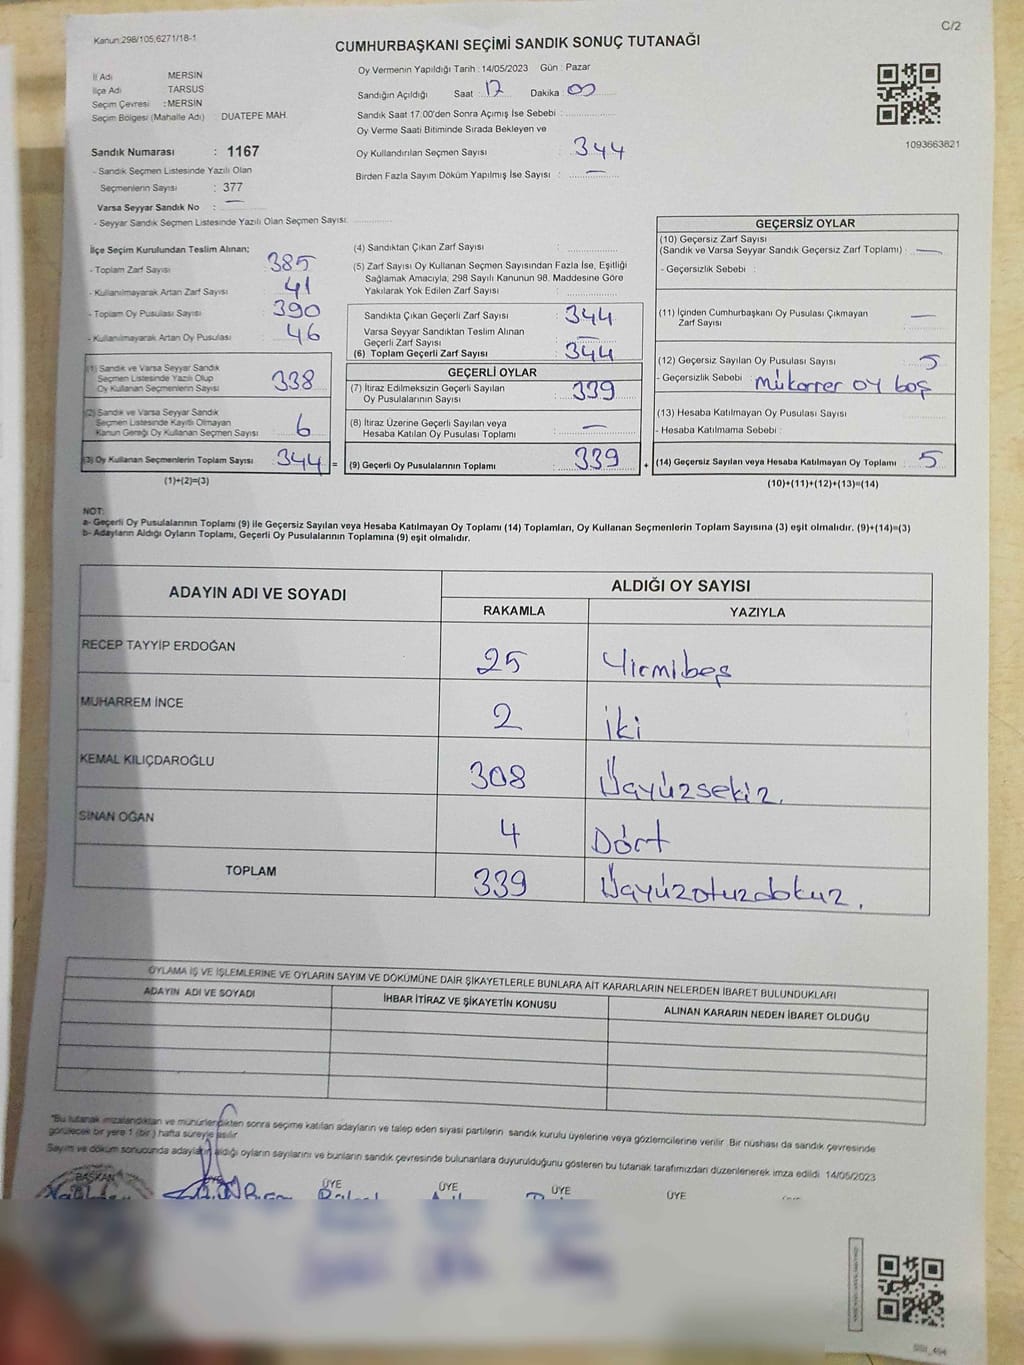 Kanun:298/105,6271/18-1
C/2
CUMHURBAŞKANI SEÇİMİ SANDIK SONUÇ TUTANAĞI
İl Adı MERSİN
İlçe Adı TARSUS
Seçim Çevresi : MERSİN
Seçim Bölgesi (Mahalle Adı) DUATEPE MAH.
Oy Vermenin Yapıldığı Tarih : 14/05/2023 Gün : Pazar
Sandığın Açıldığı Saat : 17 Dakika : 00
Sandık Saat 17:00'den Sonra Açımış İse Sebebi :
Oy Verme Saati Bitiminde Sırada Bekleyen ve
Oy Kullandırılan Seçmen Sayısı : 344
Birden Fazla Sayım Döküm Yapılmış İse Sayısı : —
1093663821
Sandık Numarası : 1167
- Sandık Seçmen Listesinde Yazılı Olan
Seçmenlerin Sayısı : 377
Varsa Seyyar Sandık No : —
- Seyyar Sandık Seçmen Listesinde Yazılı Olan Seçmen Sayısı:
İlçe Seçim Kurulundan Teslim Alınan;
- Toplam Zarf Sayısı 385
- Kullanılmayarak Artan Zarf Sayısı : 41
- Toplam Oy Pusulası Sayısı 390
- Kullanılmayarak Artan Oy Pusulası : 46
(1) Sandık ve Varsa Seyyar Sandık
Seçmen Listesinde Yazılı Olup
Oy Kullanan Seçmenlerin Sayısı 338
(2) Sandık ve Varsa Seyyar Sandık
Seçmen Listesinde Kayıtlı Olmayan
Kanun Gereği Oy Kullanan Seçmen Sayısı 6
(3) Oy Kullanan Seçmenlerin Toplam Sayısı 344 =
(1)+(2)=(3)
(4) Sandıktan Çıkan Zarf Sayısı :
(5) Zarf Sayısı Oy Kullanan Seçmen Sayısından Fazla İse, Eşitliği
Sağlamak Amacıyla, 298 Sayılı Kanunun 98. Maddesine Göre
Yakılarak Yok Edilen Zarf Sayısı :
Sandıkta Çıkan Geçerli Zarf Sayısı : 344
Varsa Seyyar Sandıktan Teslim Alınan
Geçerli Zarf Sayısı : —
(6) Toplam Geçerli Zarf Sayısı : 344
GEÇERLİ OYLAR
(7) İtiraz Edilmeksizin Geçerli Sayılan
Oy Pusulalarının Sayısı : 339
(8) İtiraz Üzerine Geçerli Sayılan veya
Hesaba Katılan Oy Pusulası Toplamı : —
(9) Geçerli Oy Pusulalarının Toplamı : 339 +
GEÇERSİZ OYLAR
(10) Geçersiz Zarf Sayısı
(Sandık ve Varsa Seyyar Sandık Geçersiz Zarf Toplamı) : —
- Geçersizlik Sebebi :
(11) İçinden Cumhurbaşkanı Oy Pusulası Çıkmayan
Zarf Sayısı : —
(12) Geçersiz Sayılan Oy Pusulası Sayısı : 5
- Geçersizlik Sebebi : Mükarrer oy boş
(13) Hesaba Katılmayan Oy Pusulası Sayısı :
- Hesaba Katılmama Sebebi :
(14) Geçersiz Sayılan veya Hesaba Katılmayan Oy Toplamı : 5
(10)+(11)+(12)+(13)=(14)
NOT:
a- Geçerli Oy Pusulalarının Toplamı (9) ile Geçersiz Sayılan veya Hesaba Katılmayan Oy Toplamı (14) Toplamları, Oy Kullanan Seçmenlerin Toplam Sayısına (3) eşit olmalıdır. (9)+(14)=(3)
b- Adayların Aldığı Oyların Toplamı, Geçerli Oy Pusulalarının Toplamına (9) eşit olmalıdır.
ADAYIN ADI VE SOYADI ALDIĞI OY SAYISI
RAKAMLA YAZIYLA
RECEP TAYYİP ERDOĞAN 25 Yirmibeş
MUHARREM İNCE 2 İki
KEMAL KILIÇDAROĞLU 308 Üçyüzsekiz.
SİNAN OĞAN 4 Dört
TOPLAM 339 Üçyüzotuzdokuz.
OYLAMA İŞ VE İŞLEMLERİNE VE OYLARIN SAYIM VE DÖKÜMÜNE DAİR ŞİKAYETLERLE BUNLARA AİT KARARLARIN NELERDEN İBARET BULUNDUKLARI
ADAYIN ADI VE SOYADI İHBAR İTİRAZ VE ŞİKAYETİN KONUSU ALINAN KARARIN NEDEN İBARET OLDUĞU
"Bu tutanak imzalandıktan ve mühürlendikten sonra seçime katılan adayların ve talep eden siyasi partilerin sandık kurulu üyelerine veya gözlemcilerine verilir. Bir nüshası da sandık çevresinde
görülecek bir yere 1 (bir) hafta süreyle asılır.
Sayım ve döküm sonucunda adayların aldığı oyların sayılarını ve bunların sandık çevresinde bulunanlara duyurulduğunu gösteren bu tutanak tarafımızdan düzenlenerek imza edildi. 14/05/2023
BAŞKAN ÜYE ÜYE ÜYE ÜYE